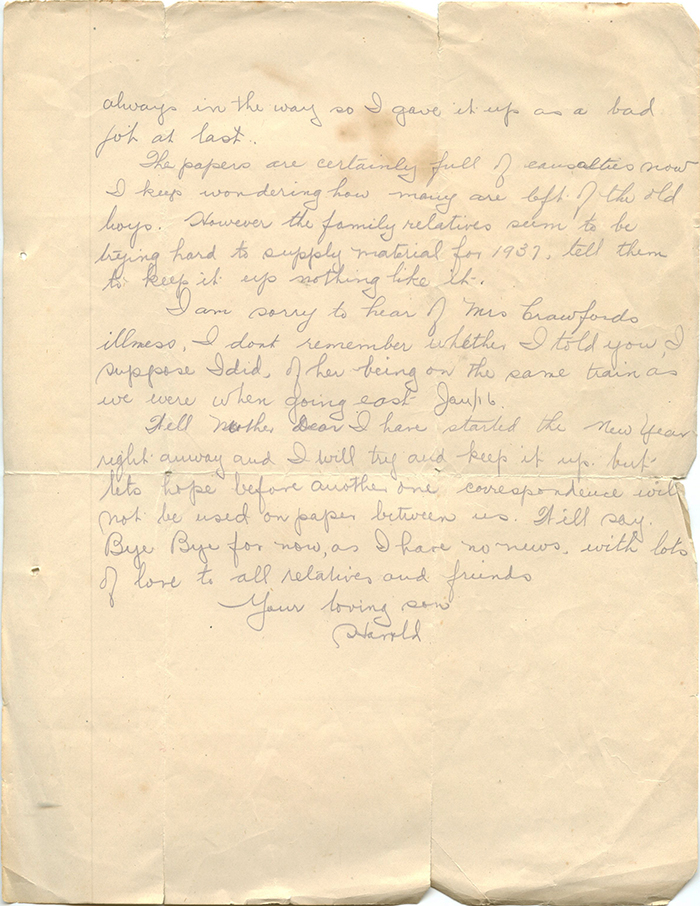 always in the way so I gave it up as a bad
job at last.
The papers are certainly full of causalties now
I keep wondering how many are left of the old
boys. However the family relatives seem to be
trying hard to supply material for 1937, tell them
to keep it up nothing like it.
I am sorry to hear of Mrs Crawfords
illness, I dont remember whether I told you, I
suppose I did, of her being on the same train as
we were when going east Jan/16.
Well Mother Dear I have started the New Year
right anway and I will try and keep it up. but
lets hope before another one, correspondence will
not be used on paper between us. Will say.
Bye Bye for now, as I have no news. with lots
of love to all relatives and friends
Your loving son
Harold